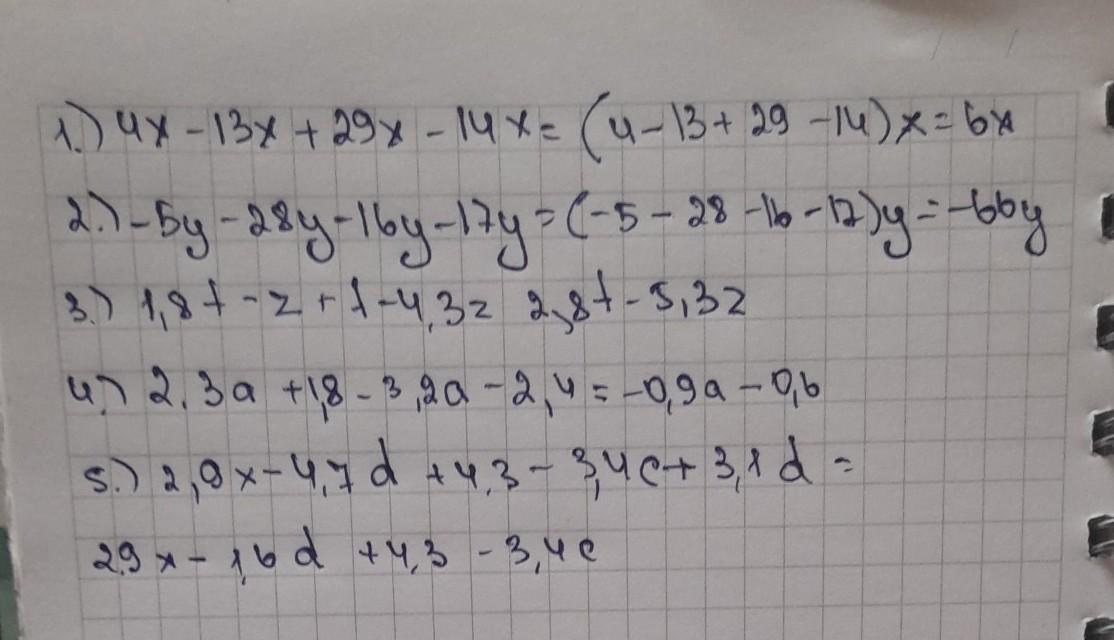 1.) 4x - 13x + 29x - 14x = (4 - 13 + 29 - 14)x = 6x
2.) -5y - 28y - 16y - 17y = (-5 - 28 - 16 - 17)y = -66y
3.) 1,8t - z + t - 4,3z 2,8t - 5,3z
4.) 2,3a + 1,8 - 3,2a - 2,4 = -0,9a - 0,6
5.) 2,9x - 4,7d + 4,3 - 3,4c + 3,1d =
2,9x - 1,6d + 4,3 - 3,4c